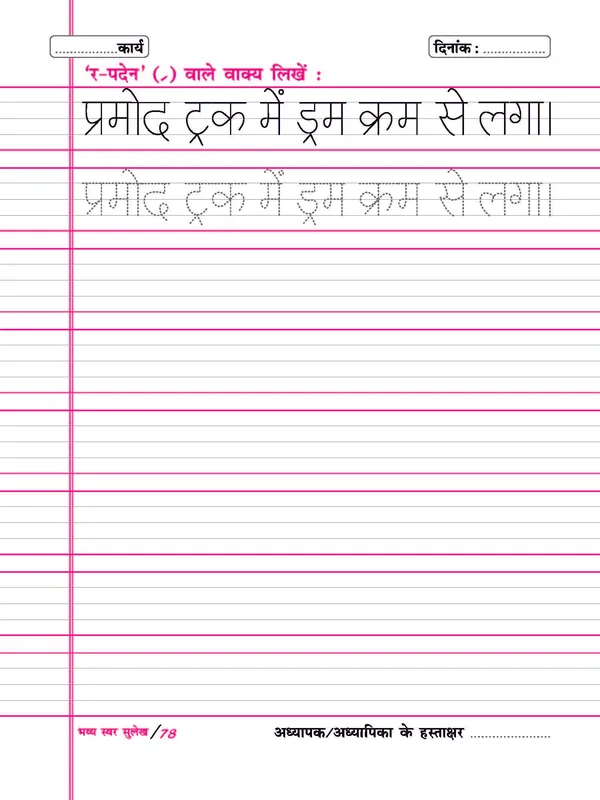 ...............कार्य
दिनांक : .................
‘र-पदेन’ (्र) वाले वाक्य लिखें :
प्रमोद ट्रक में ड्रम क्रम से लगा।
प्रमोद ट्रक में ड्रम क्रम से लगा।
भव्य स्वर सुलेख/78
अध्यापक/अध्यापिका के हस्ताक्षर .....................